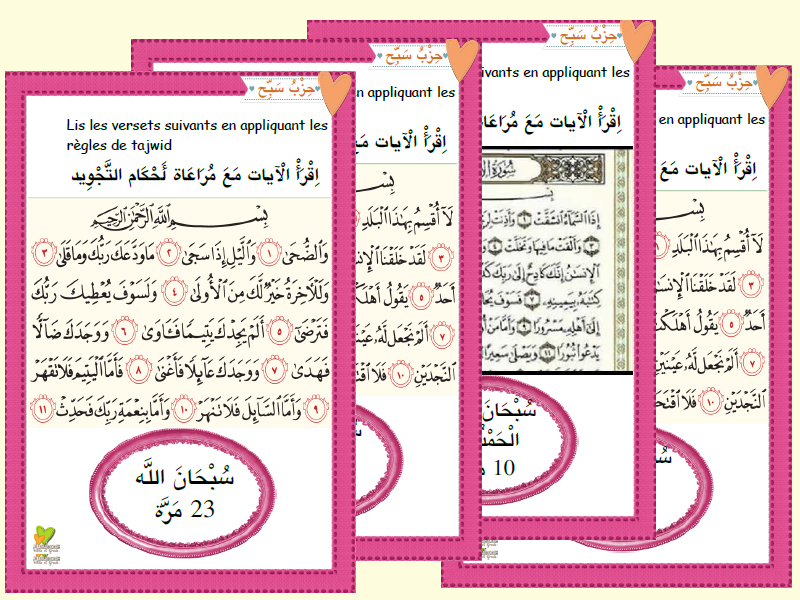 حِزْبُ سَبِّح
Lis les versets suivants en appliquant les
règles de tajwid
اِقْرَأْ الْآيات مَعَ مُرَاعَاة أَحْكَام التَّجْوِيد
بِسْمِ اللَّهِ الرَّحْمَٰنِ الرَّحِيمِ
وَالضُّحَىٰ ١ وَاللَّيْلِ إِذَا سَجَىٰ ٢ مَا وَدَّعَكَ رَبُّكَ وَمَا قَلَىٰ ٣
وَلَلْآخِرَةُ خَيْرٌ لَّكَ مِنَ الْأُولَىٰ ٤ وَلَسَوْفَ يُعْطِيكَ رَبُّكَ
فَتَرْضَىٰ ٥ أَلَمْ يَجِدْكَ يَتِيمًا فَآوَىٰ ٦ وَوَجَدَكَ ضَالًّا
فَهَدَىٰ ٧ وَوَجَدَكَ عَائِلًا فَأَغْنَىٰ ٨ فَأَمَّا الْيَتِيمَ فَلَا تَقْهَرْ
٩ وَأَمَّا السَّائِلَ فَلَا تَنْهَرْ ١٠ وَأَمَّا بِنِعْمَةِ رَبِّكَ فَحَدِّثْ ١١
سُبْحَانَ اللَّه
23 مَرَّة
حِزْبُ سَبِّح
n appliquant les
اِقْرَأْ الْآيات مَعَ
لَا أُقْسِمُ بِهَٰذَا الْبَلَدِ
٣ لَقَدْ خَلَقْنَا
أَحَدٌ ٥ يَقُولُ
٧ أَلَمْ نَجْعَل لَّهُ
النَّجْدَيْنِ ١٠ فَلَا
حِزْبُ سَبِّح
ivants en appliquant les
اِقْرَأْ الْآيات مَعَ
سُورَةُ
إِذَا السَّمَاءُ انشَقَّتْ
وَأَلْقَتْ مَا فِيهَا وَتَخَلَّتْ
الْإِنسَانُ إِنَّكَ كَادِحٌ إِلَىٰ رَبِّكَ
كِتَابَهُ بِيَمِينِهِ فَسَوْفَ
إِلَىٰ أَهْلِهِ مَسْرُورًا وَأَمَّا مَنْ
يَدْعُو ثُبُورًا وَيَصْلَىٰ سَعِيرًا
سُبْحَانَ
10
حِزْبُ سَبِّح
en appliquant les
اِقْرَأْ الْآيات مَعَ
لَا أُقْسِمُ بِهَٰذَا الْبَلَدِ
٣ لَقَدْ خَلَقْنَا
أَحَدٌ ٥ يَقُولُ
٧ أَلَمْ نَجْعَل لَّهُ عَيْنَيْنِ
النَّجْدَيْنِ ١٠ فَلَا